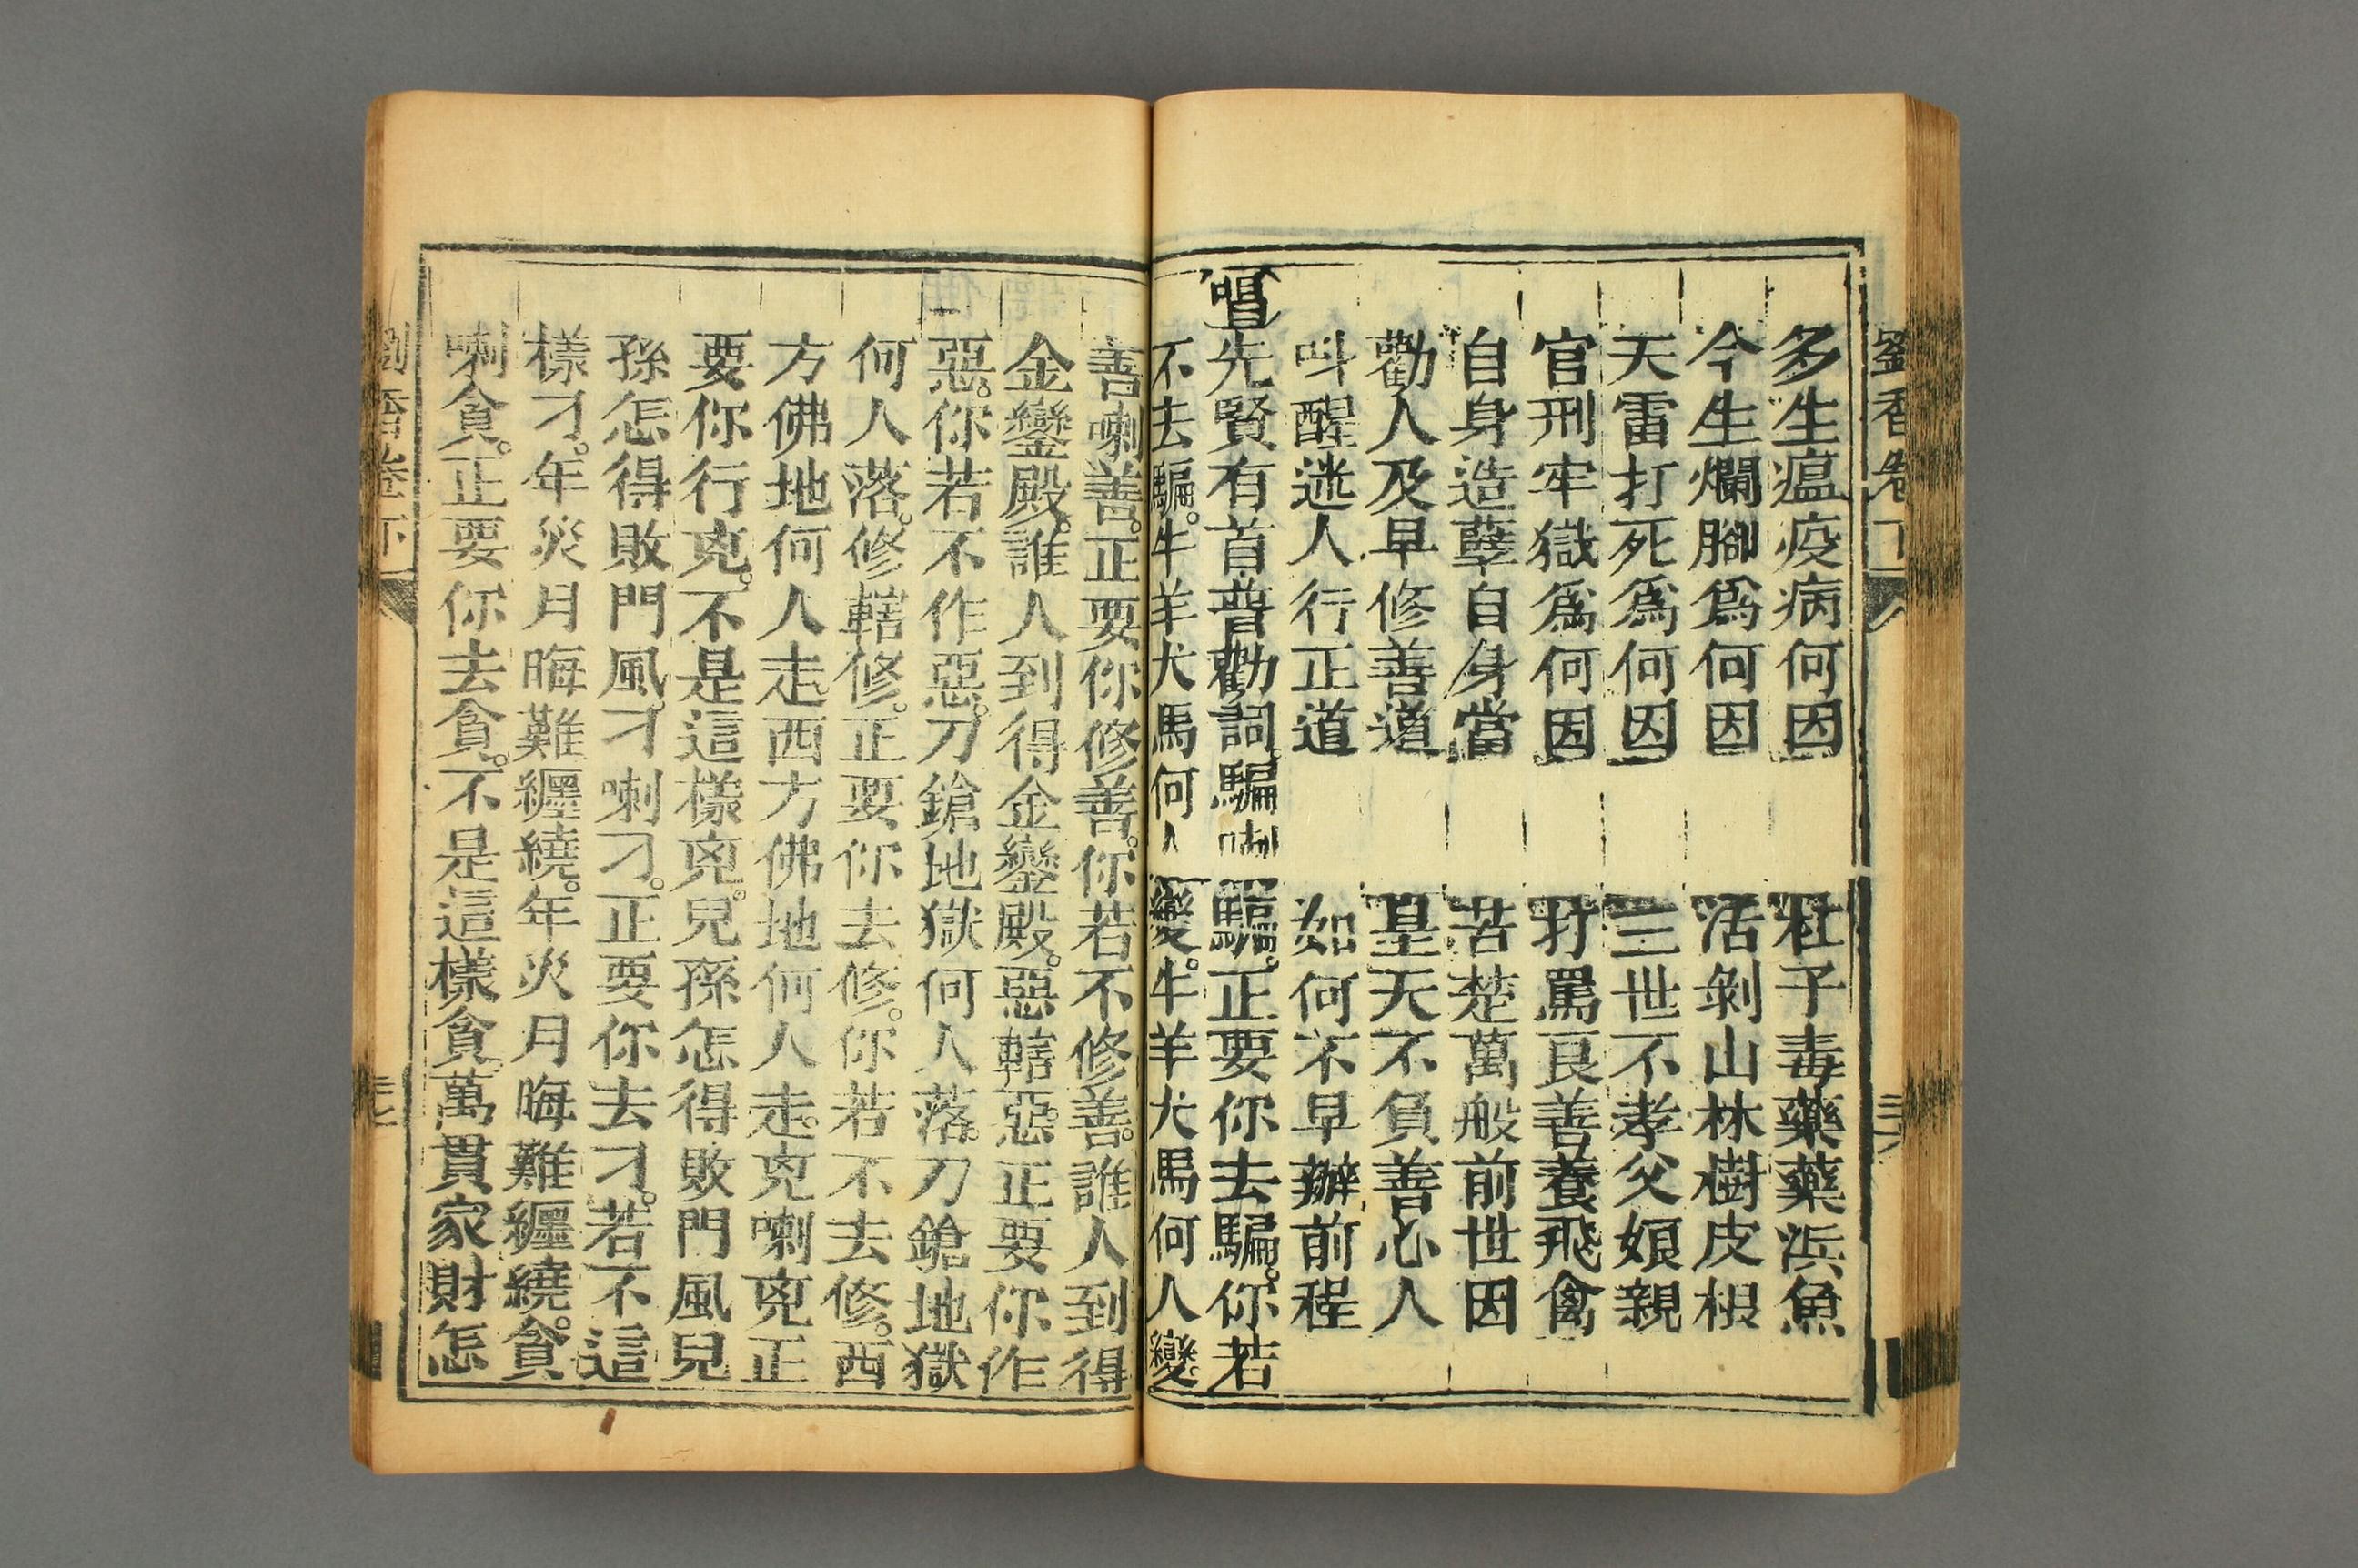 劉香卷下
多生瘟疫病何因 社予毒藥藥浜魚
今生爛腳爲何因 活剝山林樹皮根
天雷打死爲何因 三世不孝父娘親
官刑牢獄爲何因 打罵良善養飛禽
自身造孽自身當 苦楚萬般前世因
勸人及早修善道 皇天不負善心人
叫醒迷人行正道 如何不早辦前程
唱先賢有首普勸詞。騙喇騙。正要你去騙。你若
不去騙。牛羊犬馬何人變。牛羊犬馬何人變。
善喇善。正要你修善。你若不修善。誰人到得
金鑾殿。誰人到得金鑾殿。惡轄惡。正要你作
惡。你若不作惡。刀鎗地獄何人落。刀鎗地獄
何人落。修轄修。正要你去修。你若不去修。西
方佛地何人走。西方佛地何人走。兇喇兇正
要你行兇。不是這樣兇。兒孫怎得敗門風兒
孫怎得敗門風。刁喇刁。正要你去刁。若不這
樣刁。年災月晦難纒繞。年災月晦難纒繞。貪
喇貪。正要你去貪。不是這樣貪。萬貫家財怎